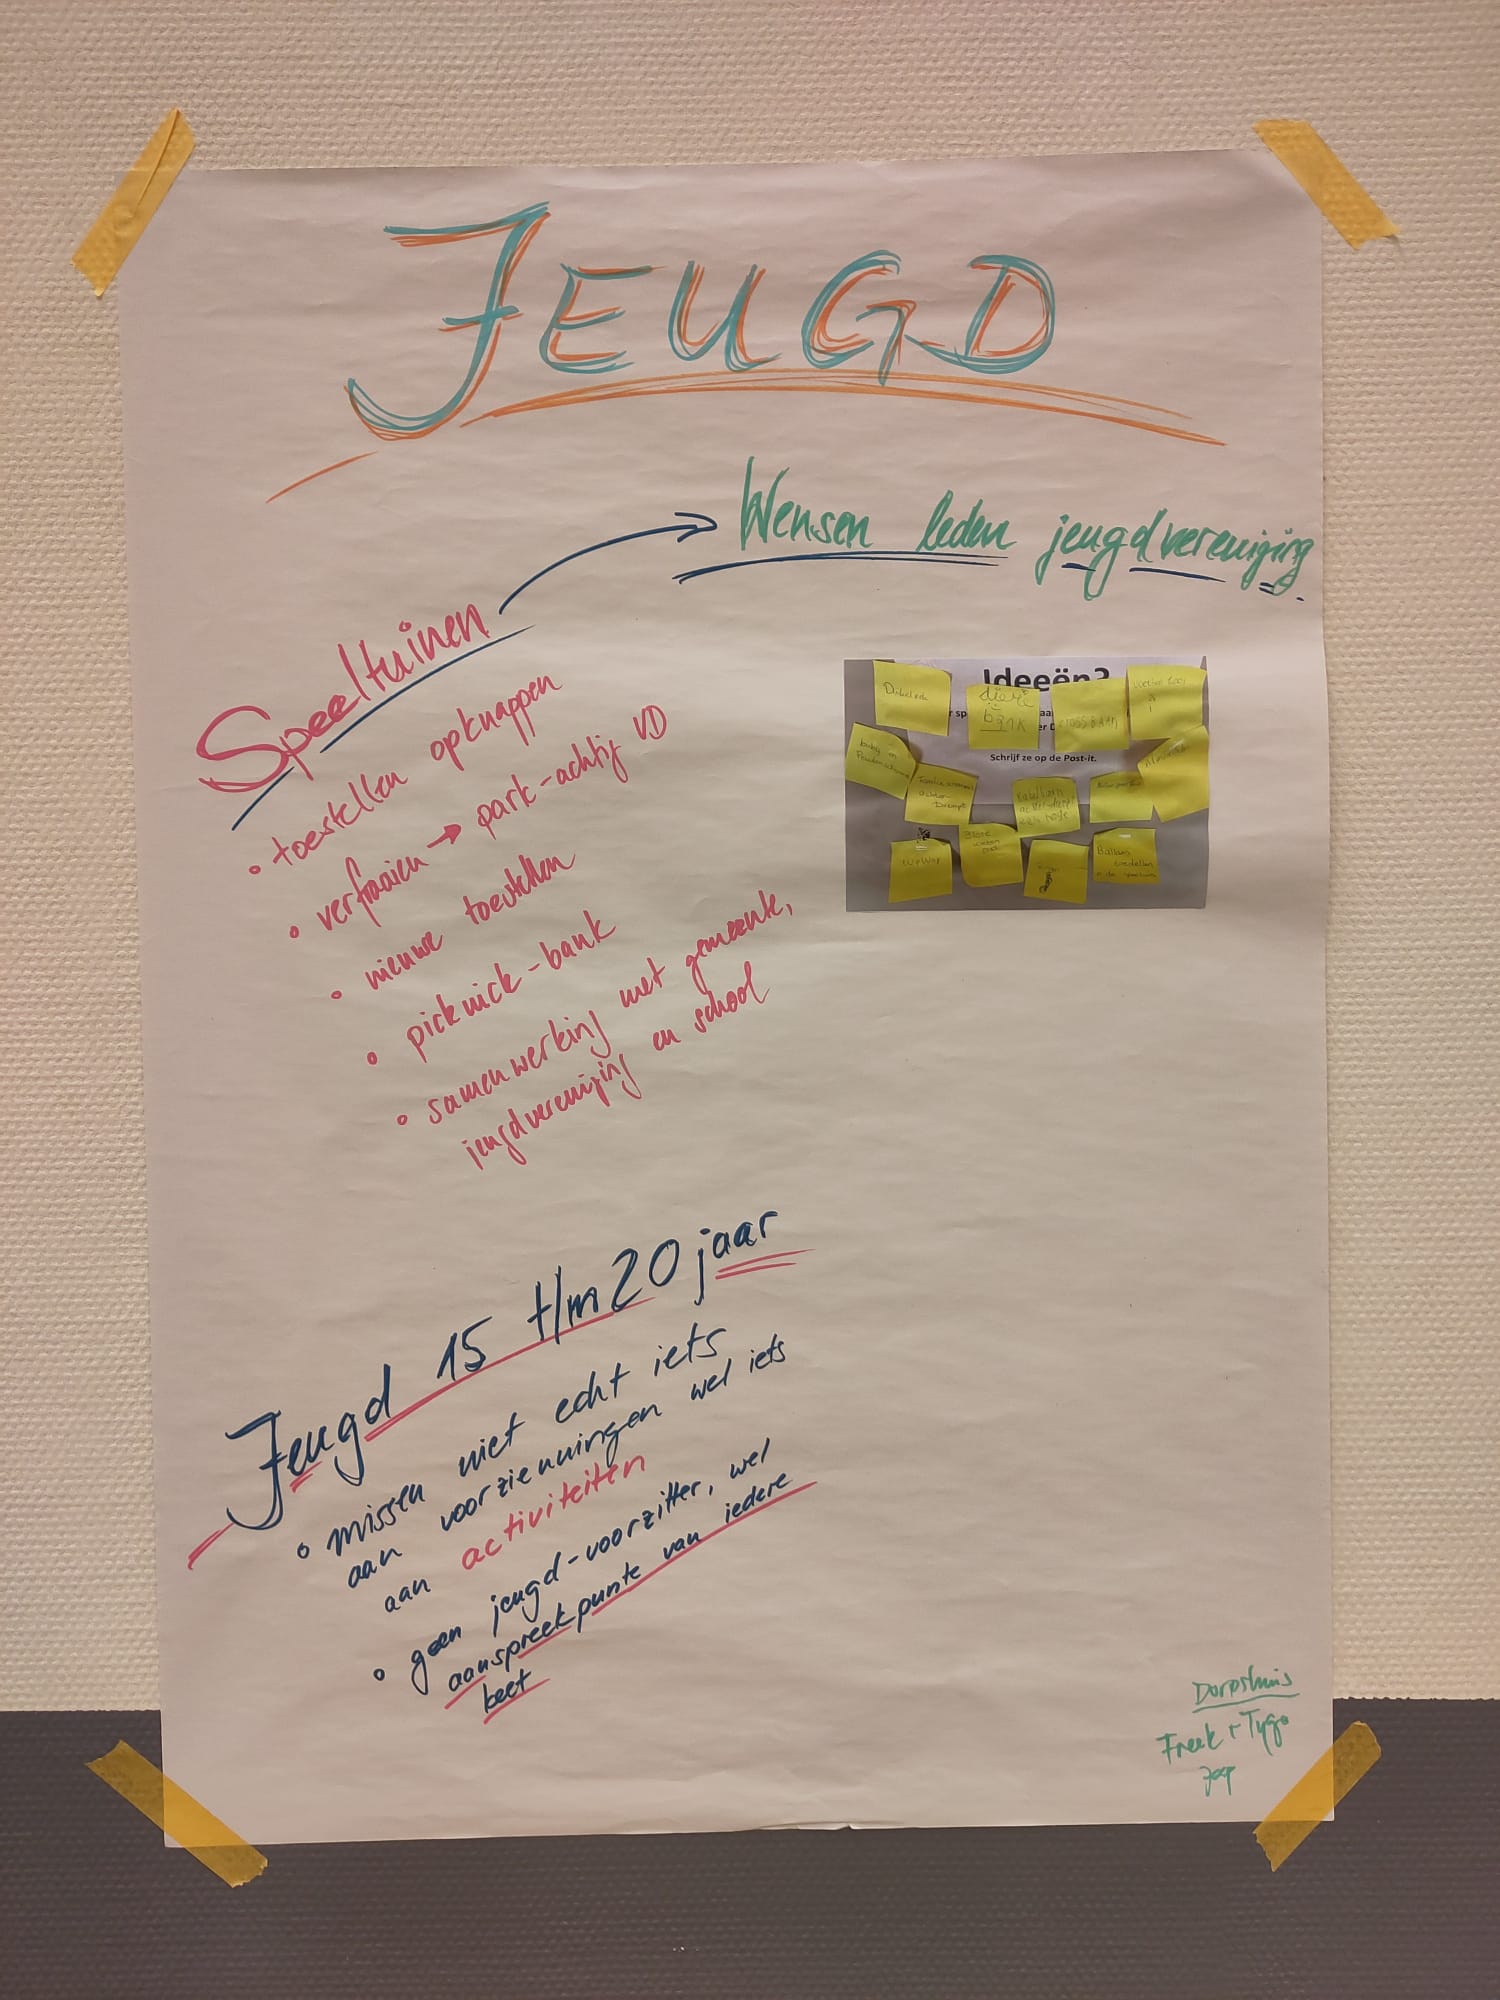 JEUGD
Wensen leden jeugdvereniging
Speeltuinen
• toestellen opknappen
• verfraaien → park-achtig VD
• nieuwe toestellen
• picknick-bank
• samenwerking met gemeente,
jeugdvereniging en school
Ideeën?
Schrijf ze op de Post-it.
BANK
CROSSBAAN
Kabelbaan
Ballen
Jeugd 15 t/m 20 jaar
• missen niet echt iets
aan voorzieningen wel iets
aan activiteiten
• geen jeugd-voorzitter, wel
aanspreekpunte van iedere
keet
Dorpshuis
Freek + Tygo